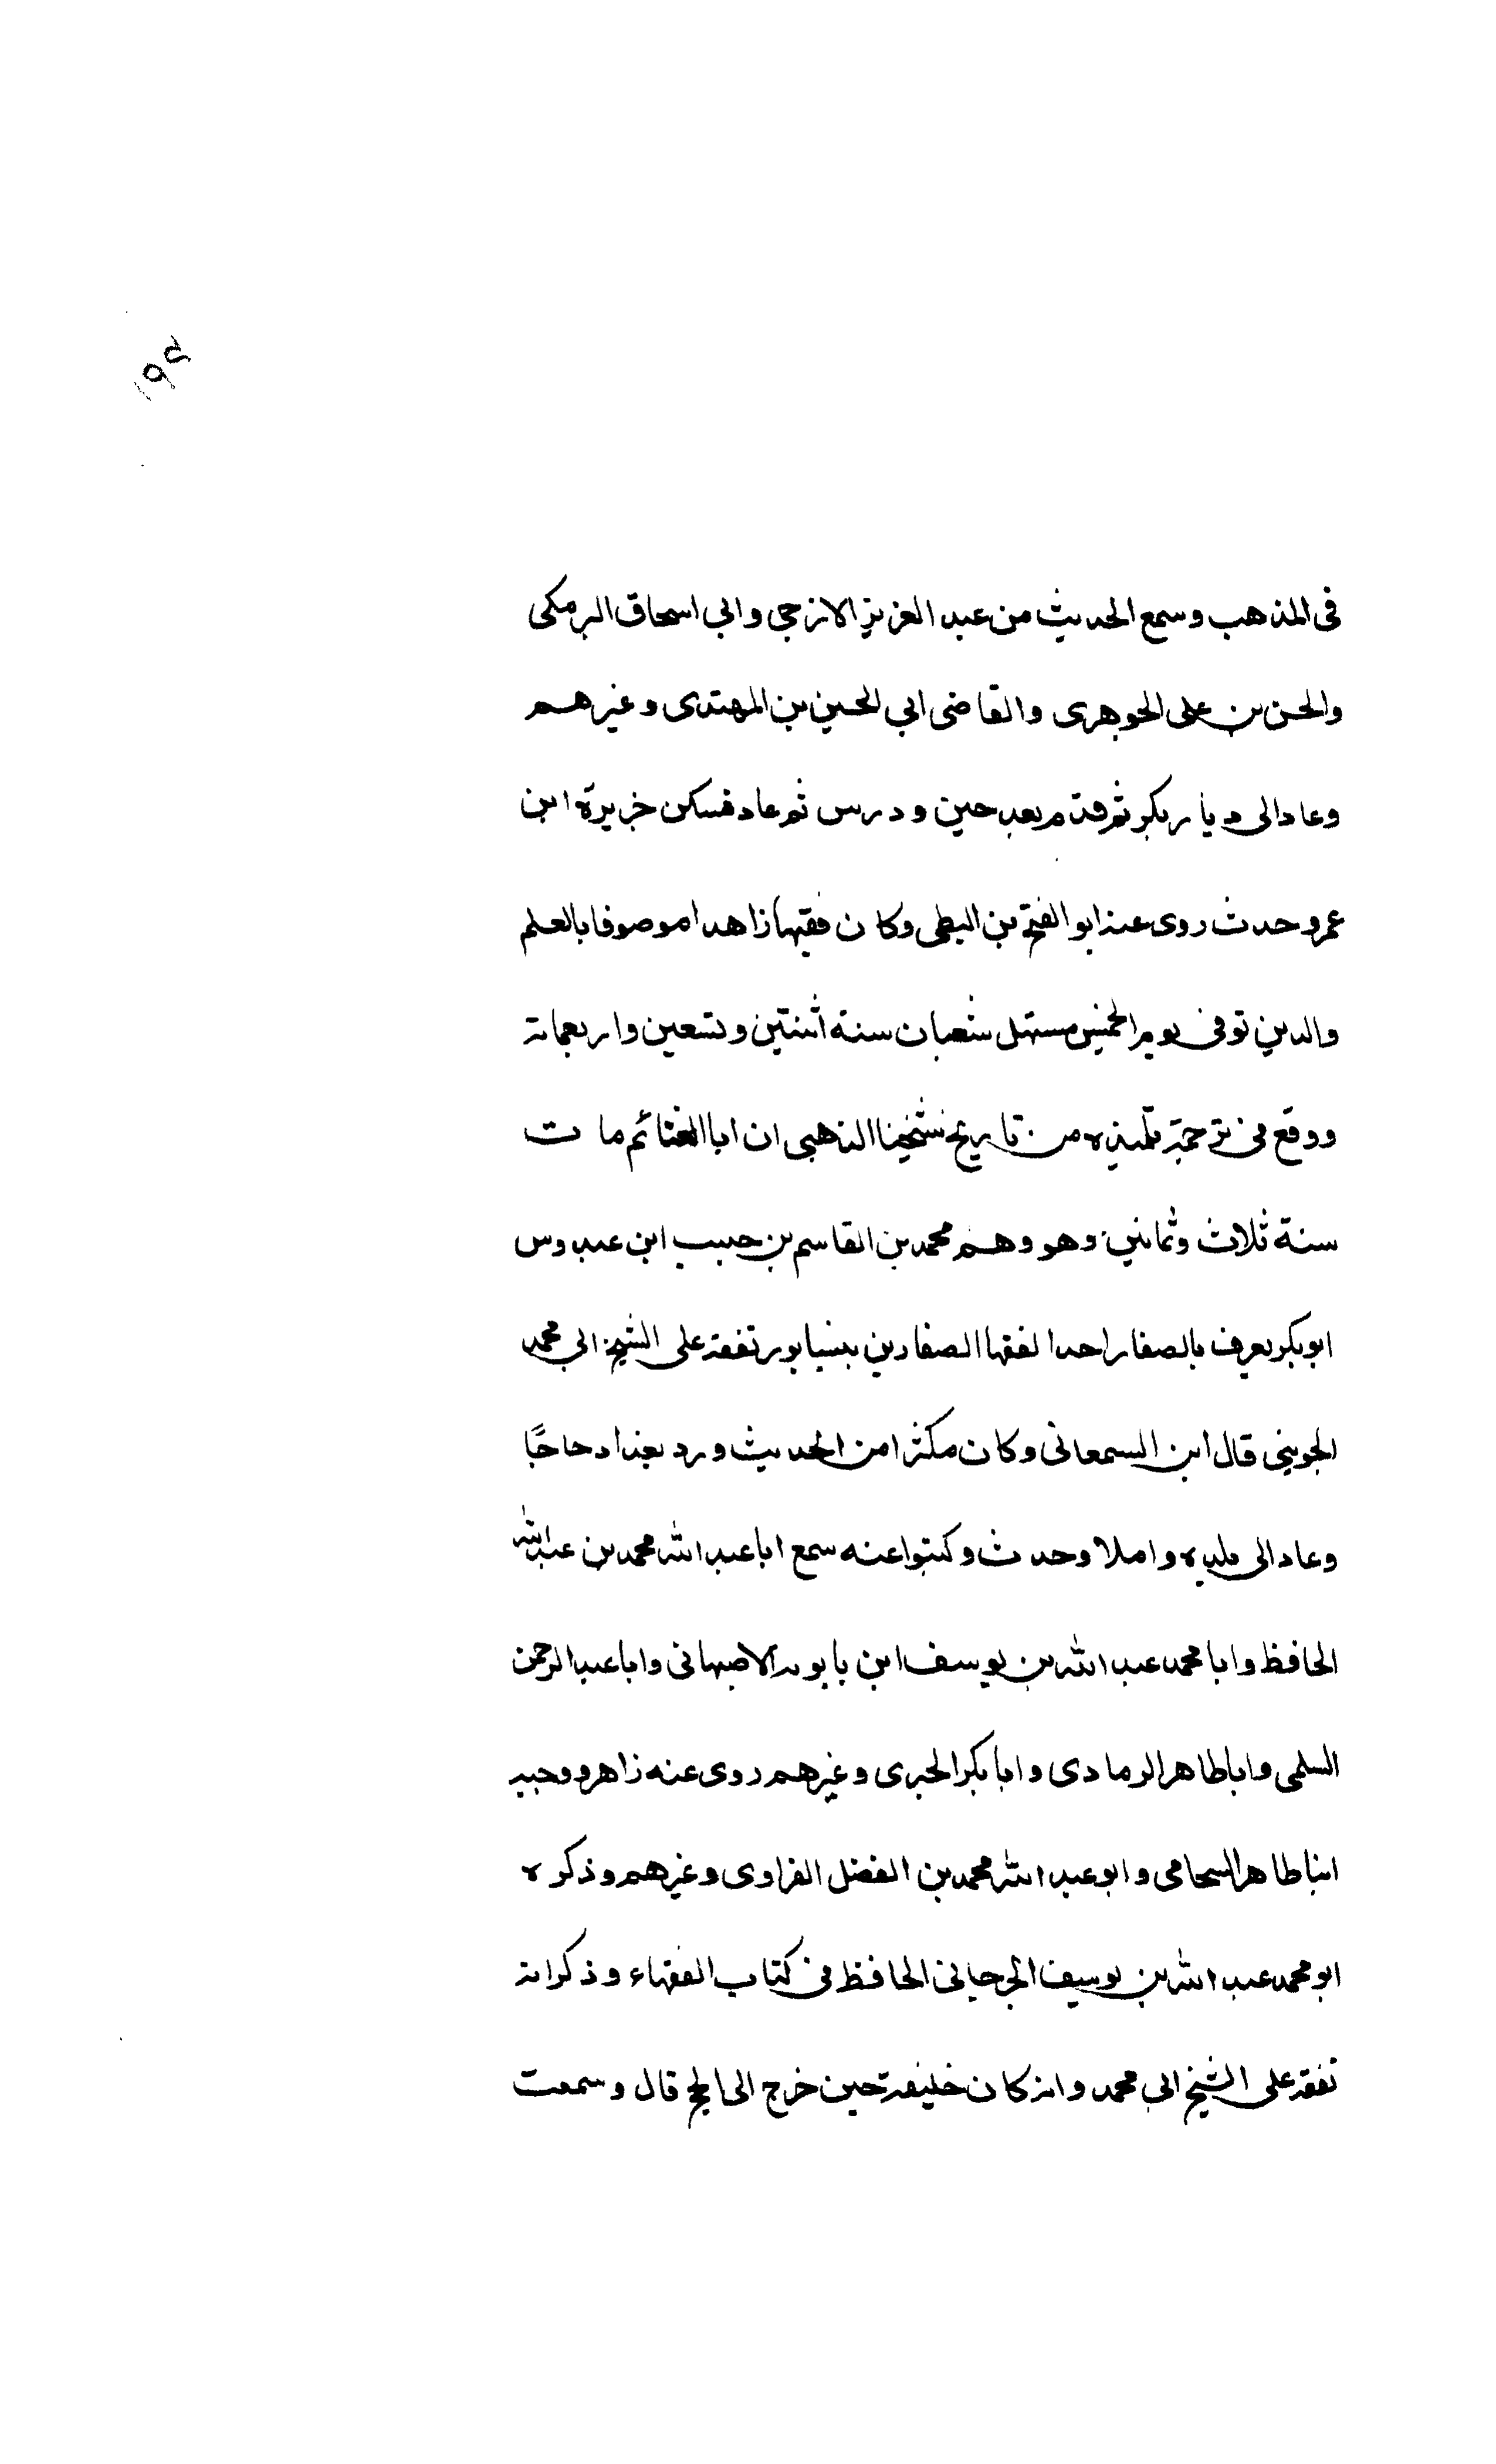 ١٩٤
في المذهب وسمع الحديث من عبد العزيز الازجي وابي اسحاق البرمكى
والحسن بن على الجوهرى والقاضى ابي الحسين بن المهتدى وغيرهم
وعاد الى ديار بكر ثم قدم بعد حين ودرس ثم عاد فسكن جزيرة ابن
عمر وحدث روى عنه ابو الفتح بن البطى وكان فقيها زاهدا موصوفا بالعلم
والدين توفى يوم الخميس مستهل شعبان سنة اثنتين وتسعين واربعماته
ووقع في ترجمة تلميذه من تاريخ شيخنا الذهبى ان ابا الغنائم مات
سنة ثلاث وثمانين وهو وهم محمد بن القاسم بن حبيب ابن عبدوس
ابوبكر يعرف بالصفار احد الفقها الصفارين بنيسابور تفقه على الشيخ ابي محمد
الجويني قال ابن السمعانى وكان مكثرا من الحديث ورد بغداد حاجًا
وعاد الى بلده واملا وحدث وكتبوا عنه سمع ابا عبد الله محمد بن عبد الله
الحافظ وابا محمد عبد الله بن يوسف ابن بابويه الاصبهانى وابا عبد الرحمن
السلمى وابا طاهر الرمادى وابا بكر الحيرى وغيرهم روى عنه زاهر ووجيه
ابنا طاهر السحامى وابو عبد الله محمد بن الفضل الفراوى وغيرهم وذكره
ابو محمد عبد الله بن يوسف الجرجانى الحافظ في كتاب الفقهاء وذكر انه
تفقه على الشيخ ابي محمد وانه كان خليفته حين خرج الى الحج قال وسمعت